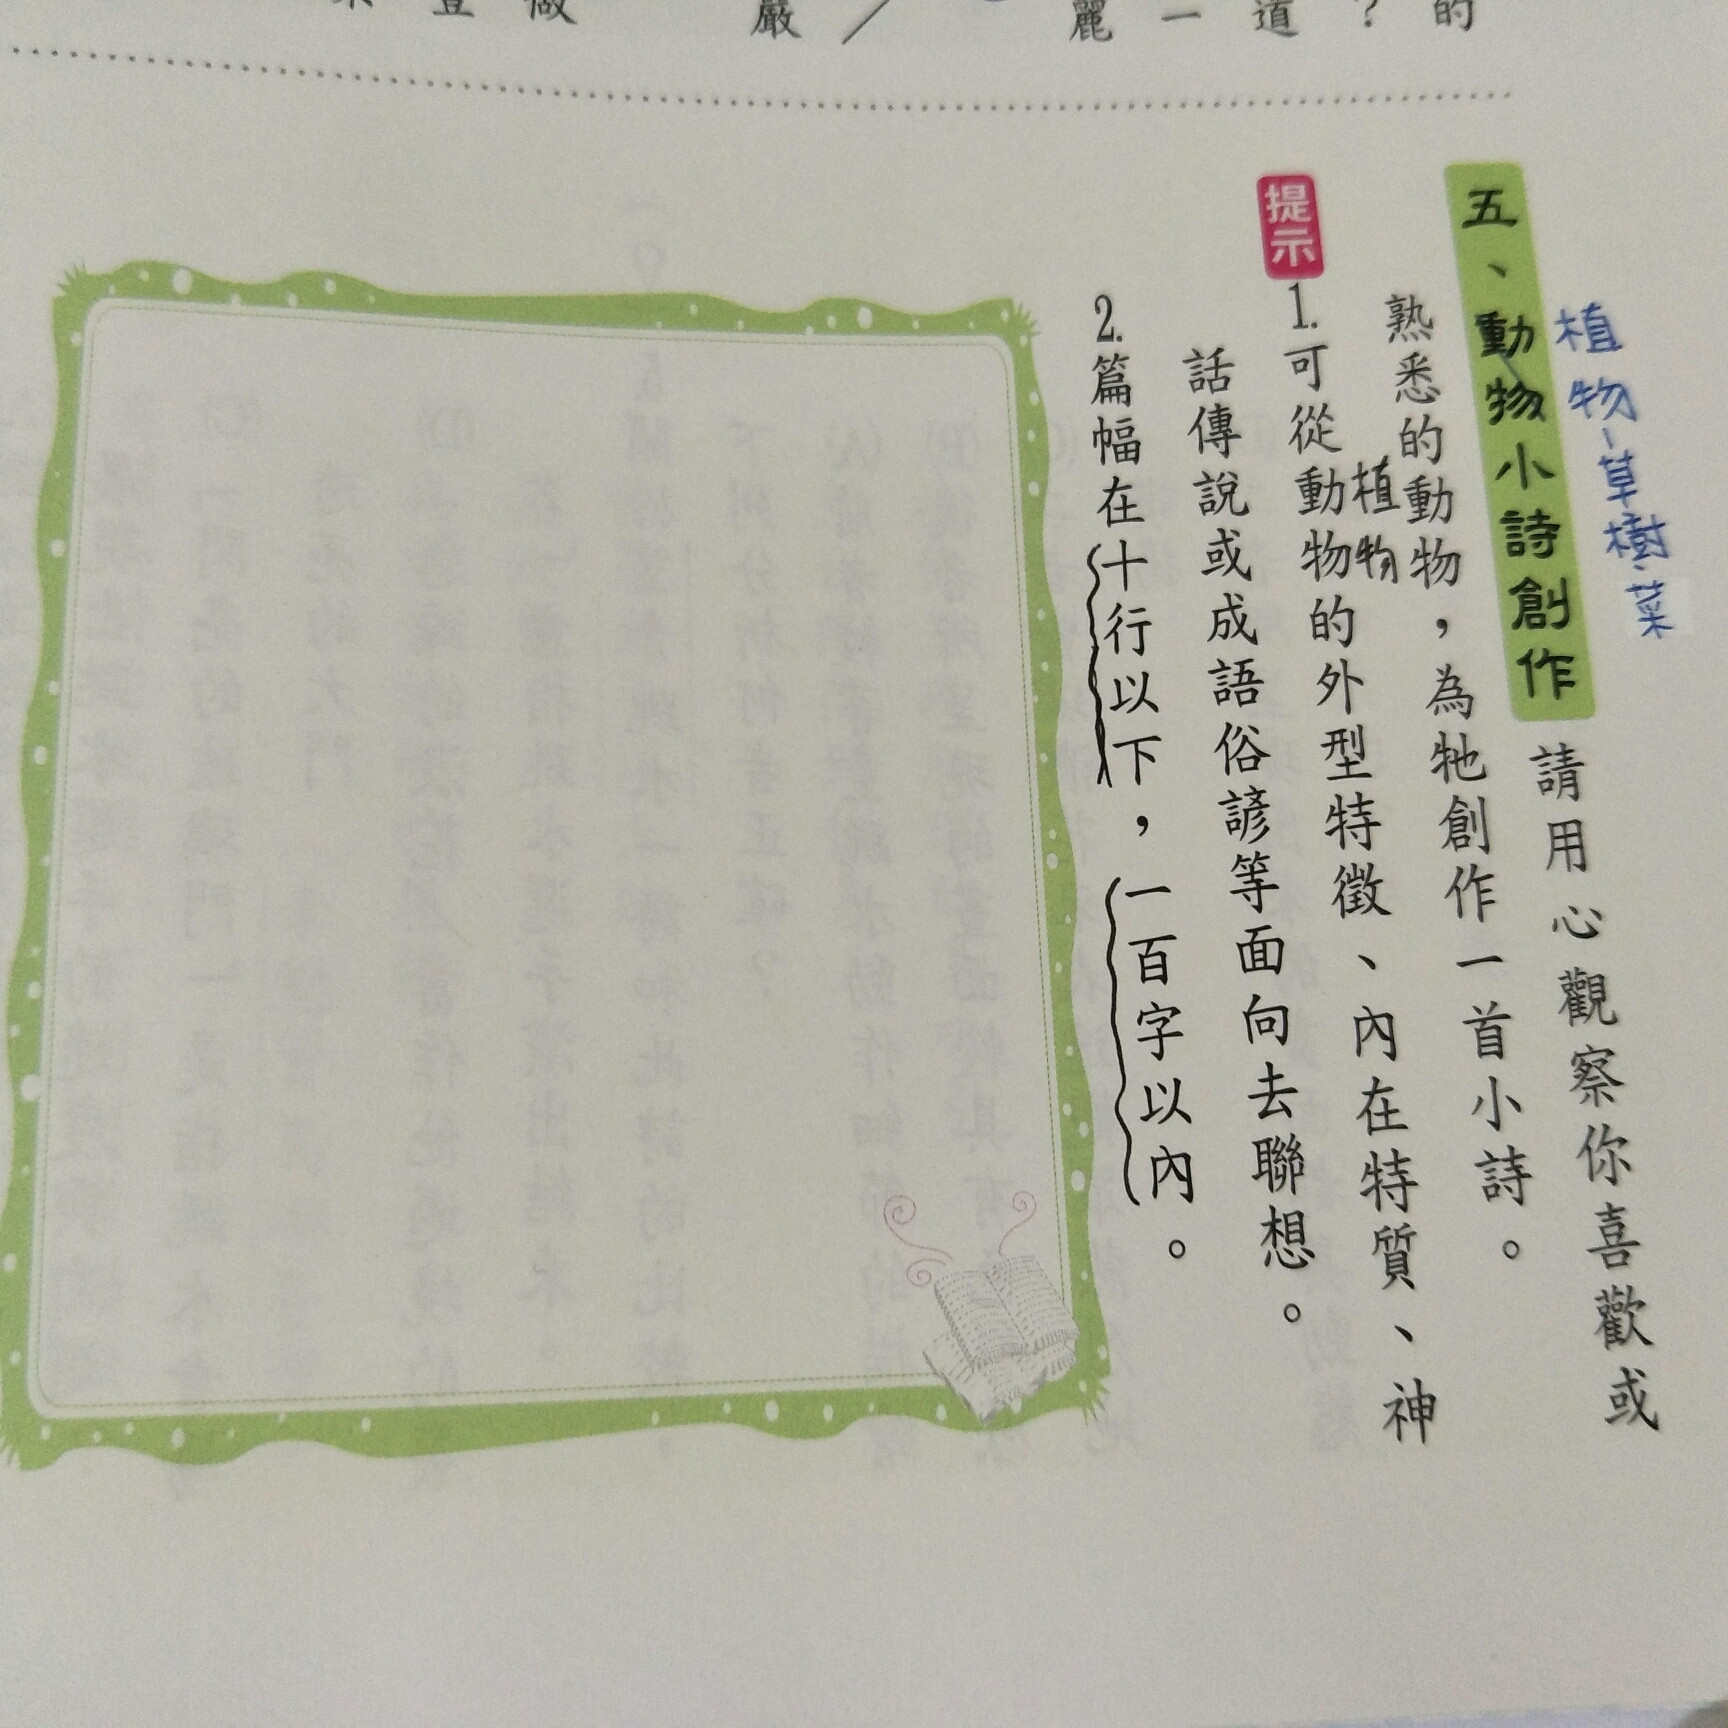 做
嚴
麗
一
道
？
的
植物-草樹、菜
五、動物小詩創作 請用心觀察你喜歡或
熟悉的動物，為牠創作一首小詩。
植物
提示 1.可從動物的外型特徵、內在特質、神
話傳說或成語俗諺等面向去聯想。
2.篇幅在十行以下，一百字以內。